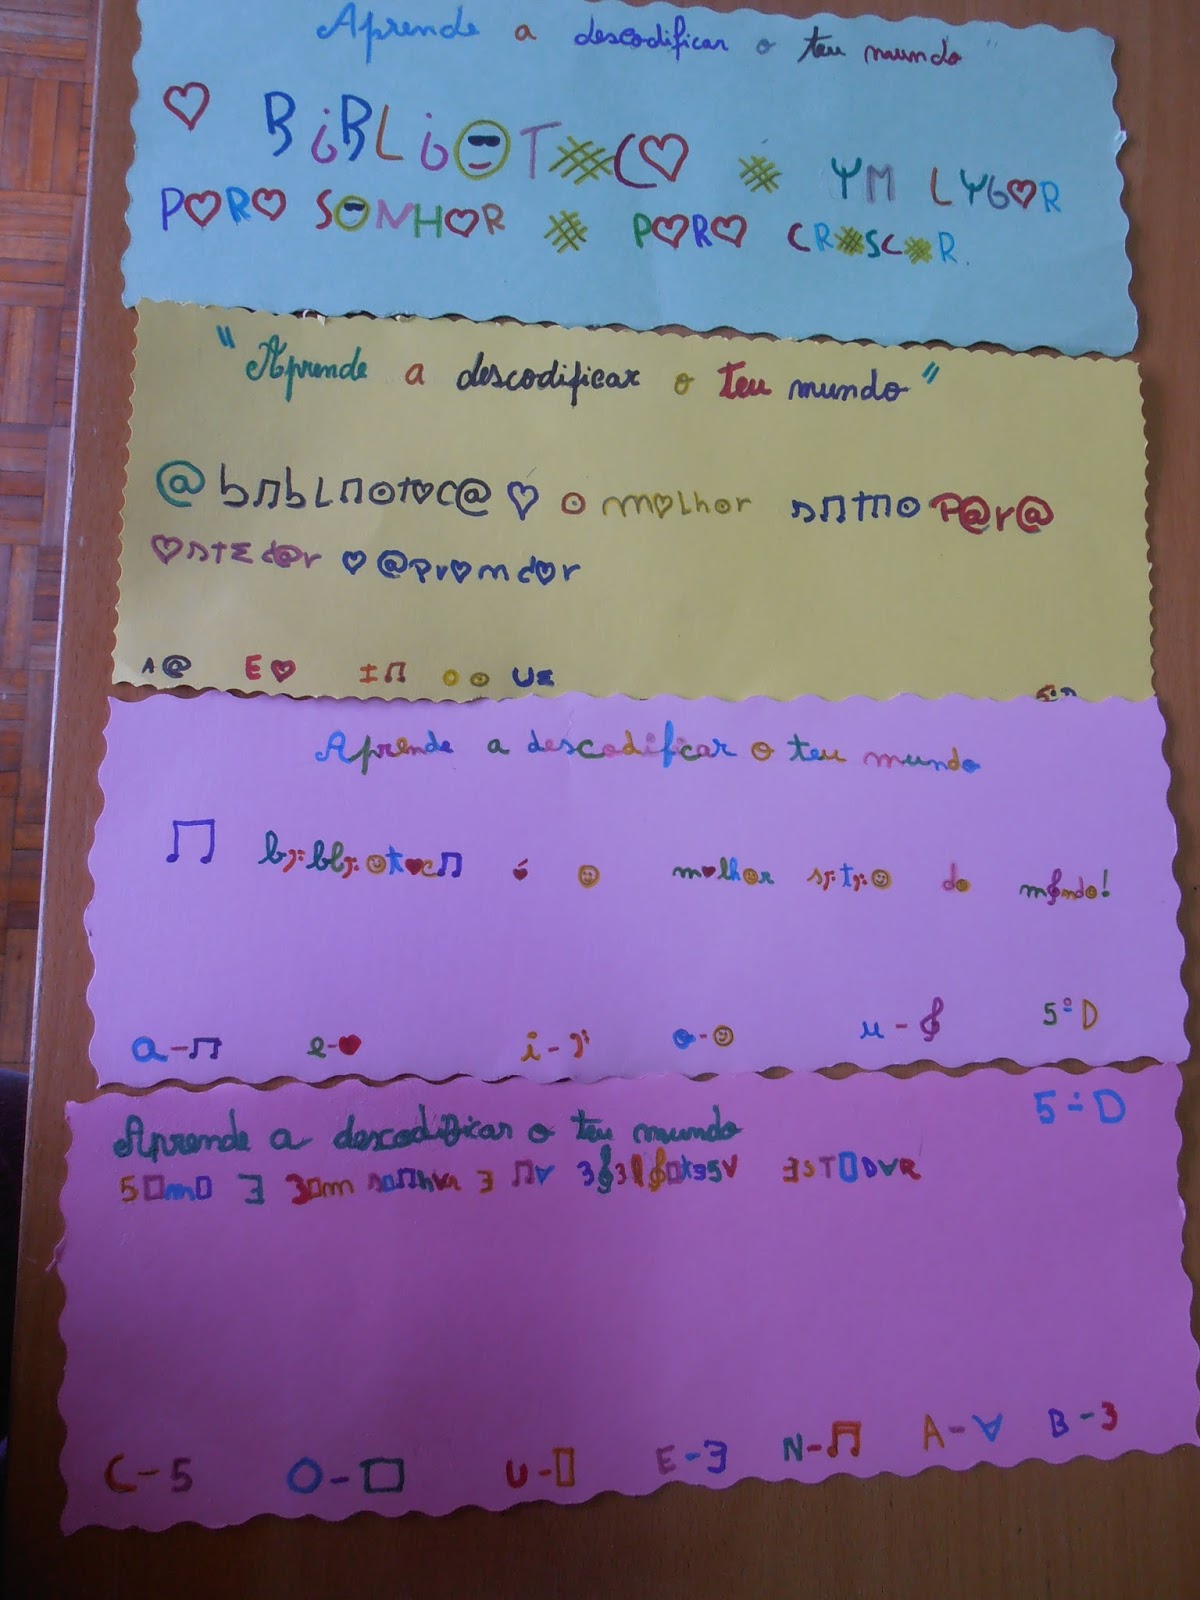 Aprende a descodificar o teu mundo"
♡ BiBLi😎T#C♡ # YM LYG♡R
P♡R♡ S😎NH♡R # P♡R♡ CR#SC#R.
"Aprende a descodificar o teu mundo"
@ b♫bl♫⊙t♡c@ ♡́ ⊙ m♡lhor s♫t♫⊙ P@r@
♡stΣd@r ♡ @pr♡nd♡r
A @ E ♡ I ♫ O ⊙ U Σ
Aprende a descodificar o teu mundo
♫ b𝄢bl𝄢☺t♥c♫ ♥́ ☺ m♥lh☺r s𝄢t𝄢☺ do m𝄞ndo!
a - ♫ e - ♥ i - 𝄢 o - ☺ u - 𝄞 5º D
Aprende a descodificar o teu mundo 5º D
5□m□ Ǝ 3□m s□♫h∀r Ǝ ♫∀ 3𝄞3l𝄞□tƎ5∀ ƎST▯D∀R
C - 5 O - □ U - ▯ E - Ǝ N - ♫ A - ∀ B - 3